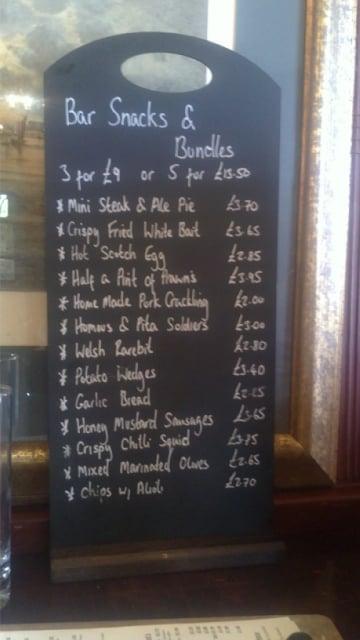 Bar Snacks &
Bundles
3 for £9 or 5 for £13.50
* Mini Steak & Ale Pie £3.70
* Crispy Fried White Bait £3.65
* Hot Scotch Egg £2.85
* Half a Pint of Prawn's £3.95
* Home Made Pork Crackling £2.00
* Homous & Pita Soldiers £3.00
* Welsh Rarebit £2.80
* Potato Wedges £3.40
* Garlic Bread
* Honey Mustard Sausages £3.65
* Crispy Chilli Squid £3.75
* Mixed Marinated Olives £2.65
* Chips w/ Alioli £2.70